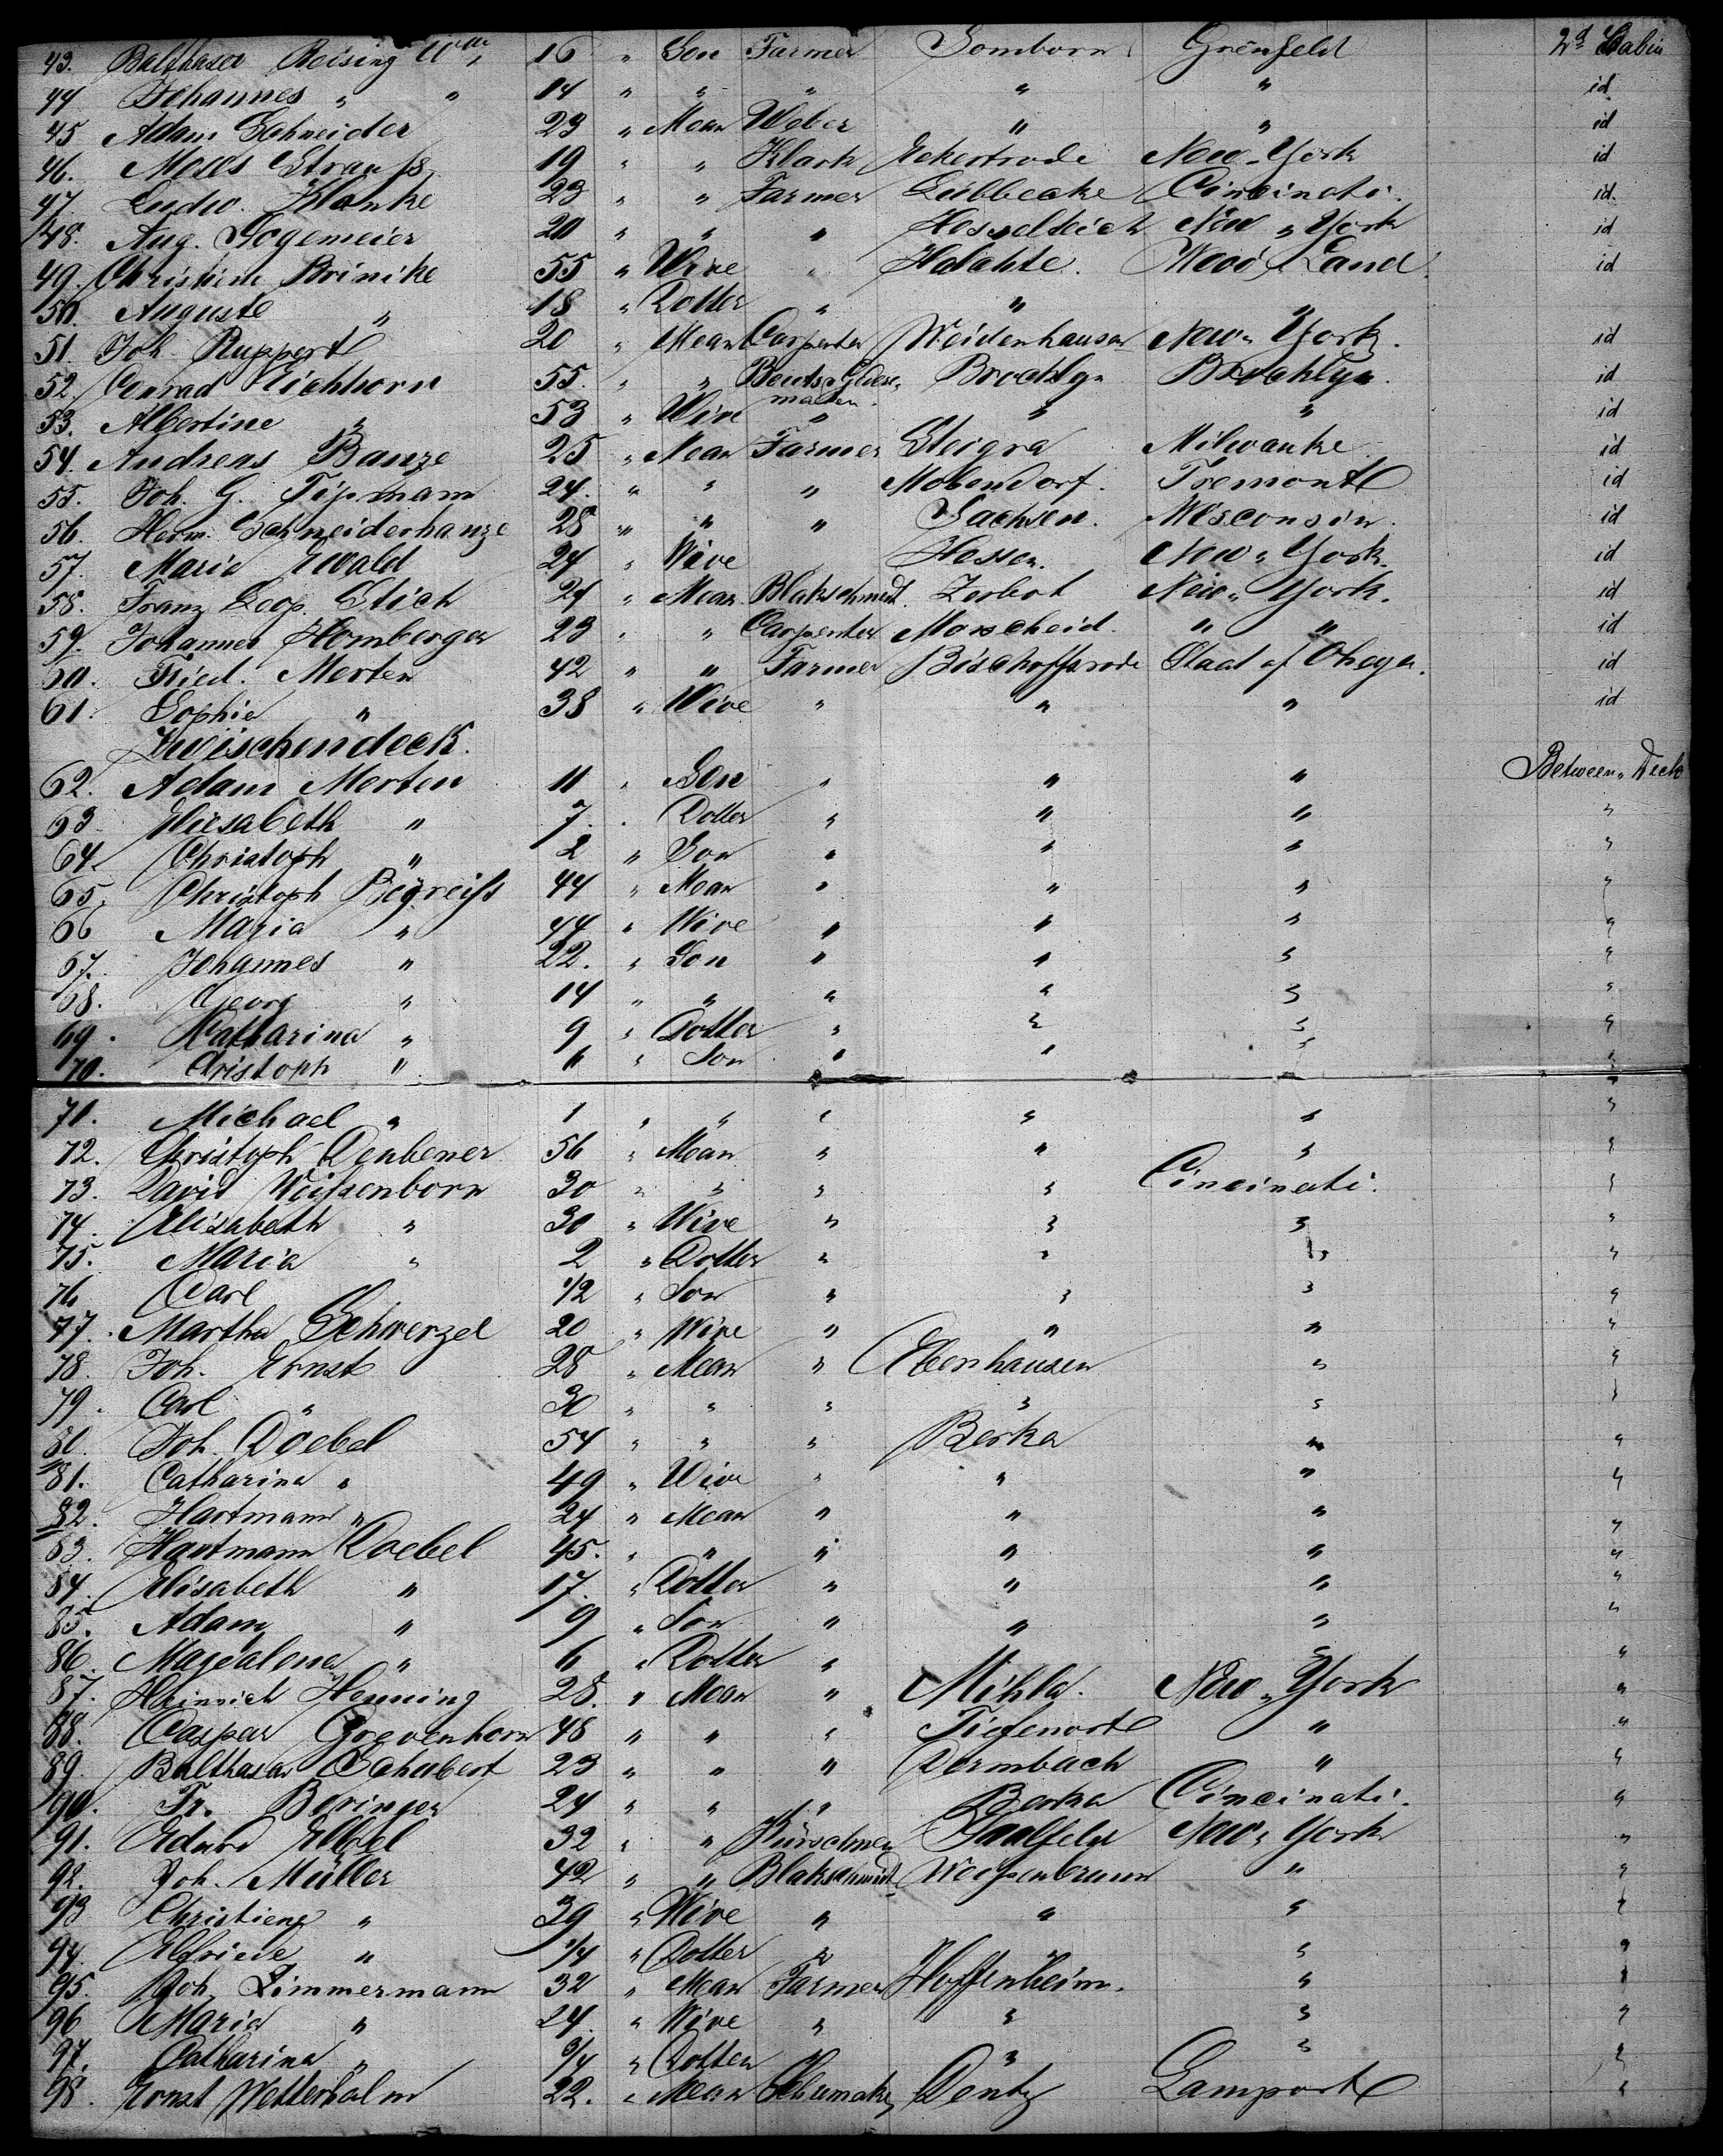 43. Balthaser Reising 16 " Son Farmer Somborn Grönfeld 2d Cabin
44 Johannes " " 14 " " " " " id
45 Adam Schneider 23 " Mean Weber " " id
46. Moses Strauss 19 " " Klark Eckertrode New-York id
47. Ludw. Klanke 23 " " Farmer Lübbecke Cincinati. id.
48. Aug. Gogemeier 20 " " " Hesselteich New "York id
49. Christiene Brinike 55 " Wive " Halahte. Land id
50. Auguste " 18 " Dotter " " "
51. Joh. Ruppert 20 " Mean Carpenter Weidenhausen New " York. id
52. Conrad Eichhorn 55. " " Brocklyn Brocklyn. id
maken.
53. Albertine " 53 " Wive " " " id
54. Andreas Banze 25 " Mean Farmer Steigra Milwauke id
55. Joh. G. Tipmann 24. " " " Mobendorf. Tremont id
56. Herm. Schneiderhanze 28 " " " Sachsen. Wesconsin. id
57. Maria Ewald 24 " Wive Hessen. New " York. id
58. Franz Leop. Stich 24 " Mean Blakschmidt. Zerbst New " York. id
59. Johannes Homberger 23 " " Carpenter Morscheid. " " id
60. Fried. Merten 42 " " Farmer Bischoffsrode Staat of Oheyo. id
61. Sophie " 38 " Wive " " " id
Zwischendeck.
62. Adam Merten 11 " Son " " " Between " Deck
63 Eliesabeth " 7. " Dotter " " " "
64. Christoph " 2 " Son " " " "
65. Christoph Begreiss 44 " Mean " " " "
66 Maria " 44 " Wive " " " "
67. Johannes " 22. " Son " " " "
68. Georg " 14 " " " " " "
69. Katharina " 9 " Dotter " " " "
70. Christoph " 6 " Son " " " "
71. Michael " 1 " " " " " "
72. Christoph Deubener 56 " Mean " " " "
73. David Weissenborn 30 " " " " Cincinati. "
74. Elisabeth " 30 " Wive " " " "
75. Maria " 2 " Dotter " " " "
76 Carl 1/2 " Son " " " "
77. Martha Schwerzel 20 " Wive " " " "
78. Joh. Ernst 28 " Mean " Ebenhausen " "
79. Carl " 30 " " " " " "
80. Joh. Doebel 54 " " " Berka " "
81. Catharina " 49 " Wive " " " "
82. Hartmann " 24 " Mean " " " "
83. Hartmann Doebel 45. " " " " " "
84. Elisabeth " 17. " Dotter " " " "
85. Adam " 9 " Son " " " "
86. Magdalena " 6 " Dotter " " "
87. Heinrich Henning 28. " Mean " Mihla. New " York "
88. Caspar Grevenhorn 48 " " " Tiefenort " "
89. Balthasar Schubert 23 " " " Dermbach " "
90. Fr. Beringer 24 " " " Berka Cincinati. "
91. Eduard Ebbel 32 " " Saalfeld New " York "
92. Joh. Müller 42 " " Blakschmidt Weissenbrunn " "
93 Christiene " 39 " Wive " " " "
94. Elfriede " 1/4 " Dotter " " "
95. Joh. Zimmermann 32 " Mean Farmer Hoffenheim. " "
96 Maria " 24. " Wive " " " "
97. Catharina " 3/4 " Dotter " " " "
98. Ernst Wetterhalm 22. " Mean Schumaker Dentz Lamport "